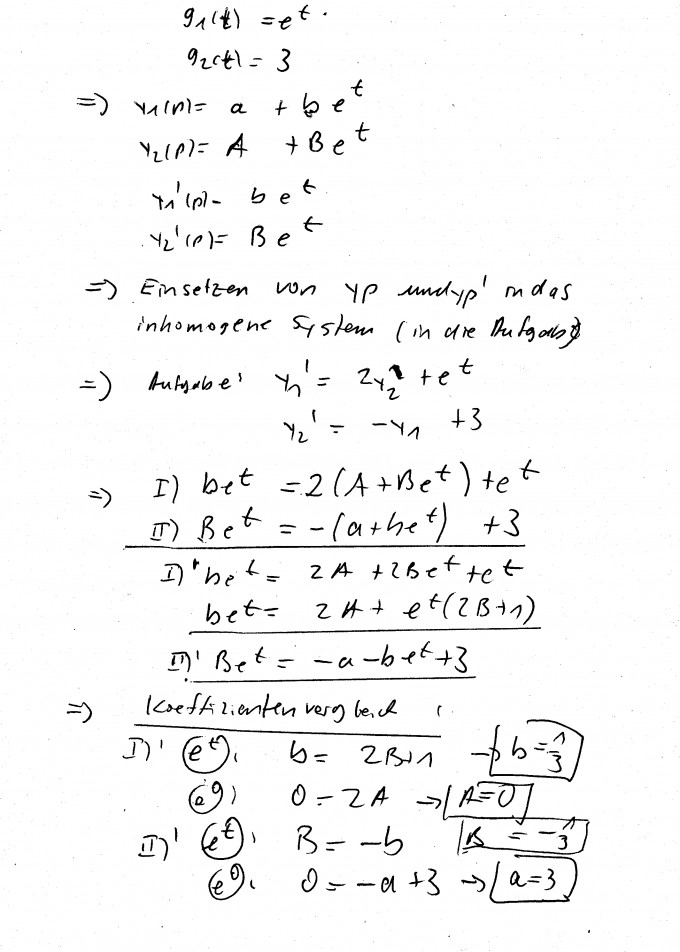 g1(t) = e^t.
g2(t) = 3
=> y1(p) = a + b e^t
y2(p) = A + B e^t
y1'(p) = b e^t
y2'(p) = B e^t
=> Einsetzen von yp und yp' in das
inhomogene System (in die Aufgabe)
=> Aufgabe: y1' = 2y2 + e^t
y2' = -y1 + 3
=> I) be^t = 2(A+Be^t)+e^t
II) Be^t = -(a+be^t) +3
I)' be^t = 2A +2Be^t+e^t
be^t = 2A + e^t(2B+1)
II)' Be^t = -a-be^t+3
=> Koeffizientenvergleich :
I)' (e^t): b = 2B+1 -> b = 1/3
(e^0): 0 = 2A -> A=0
II)' (e^t): B = -b B = -1/3
(e^0): 0 = -a +3 -> a=3